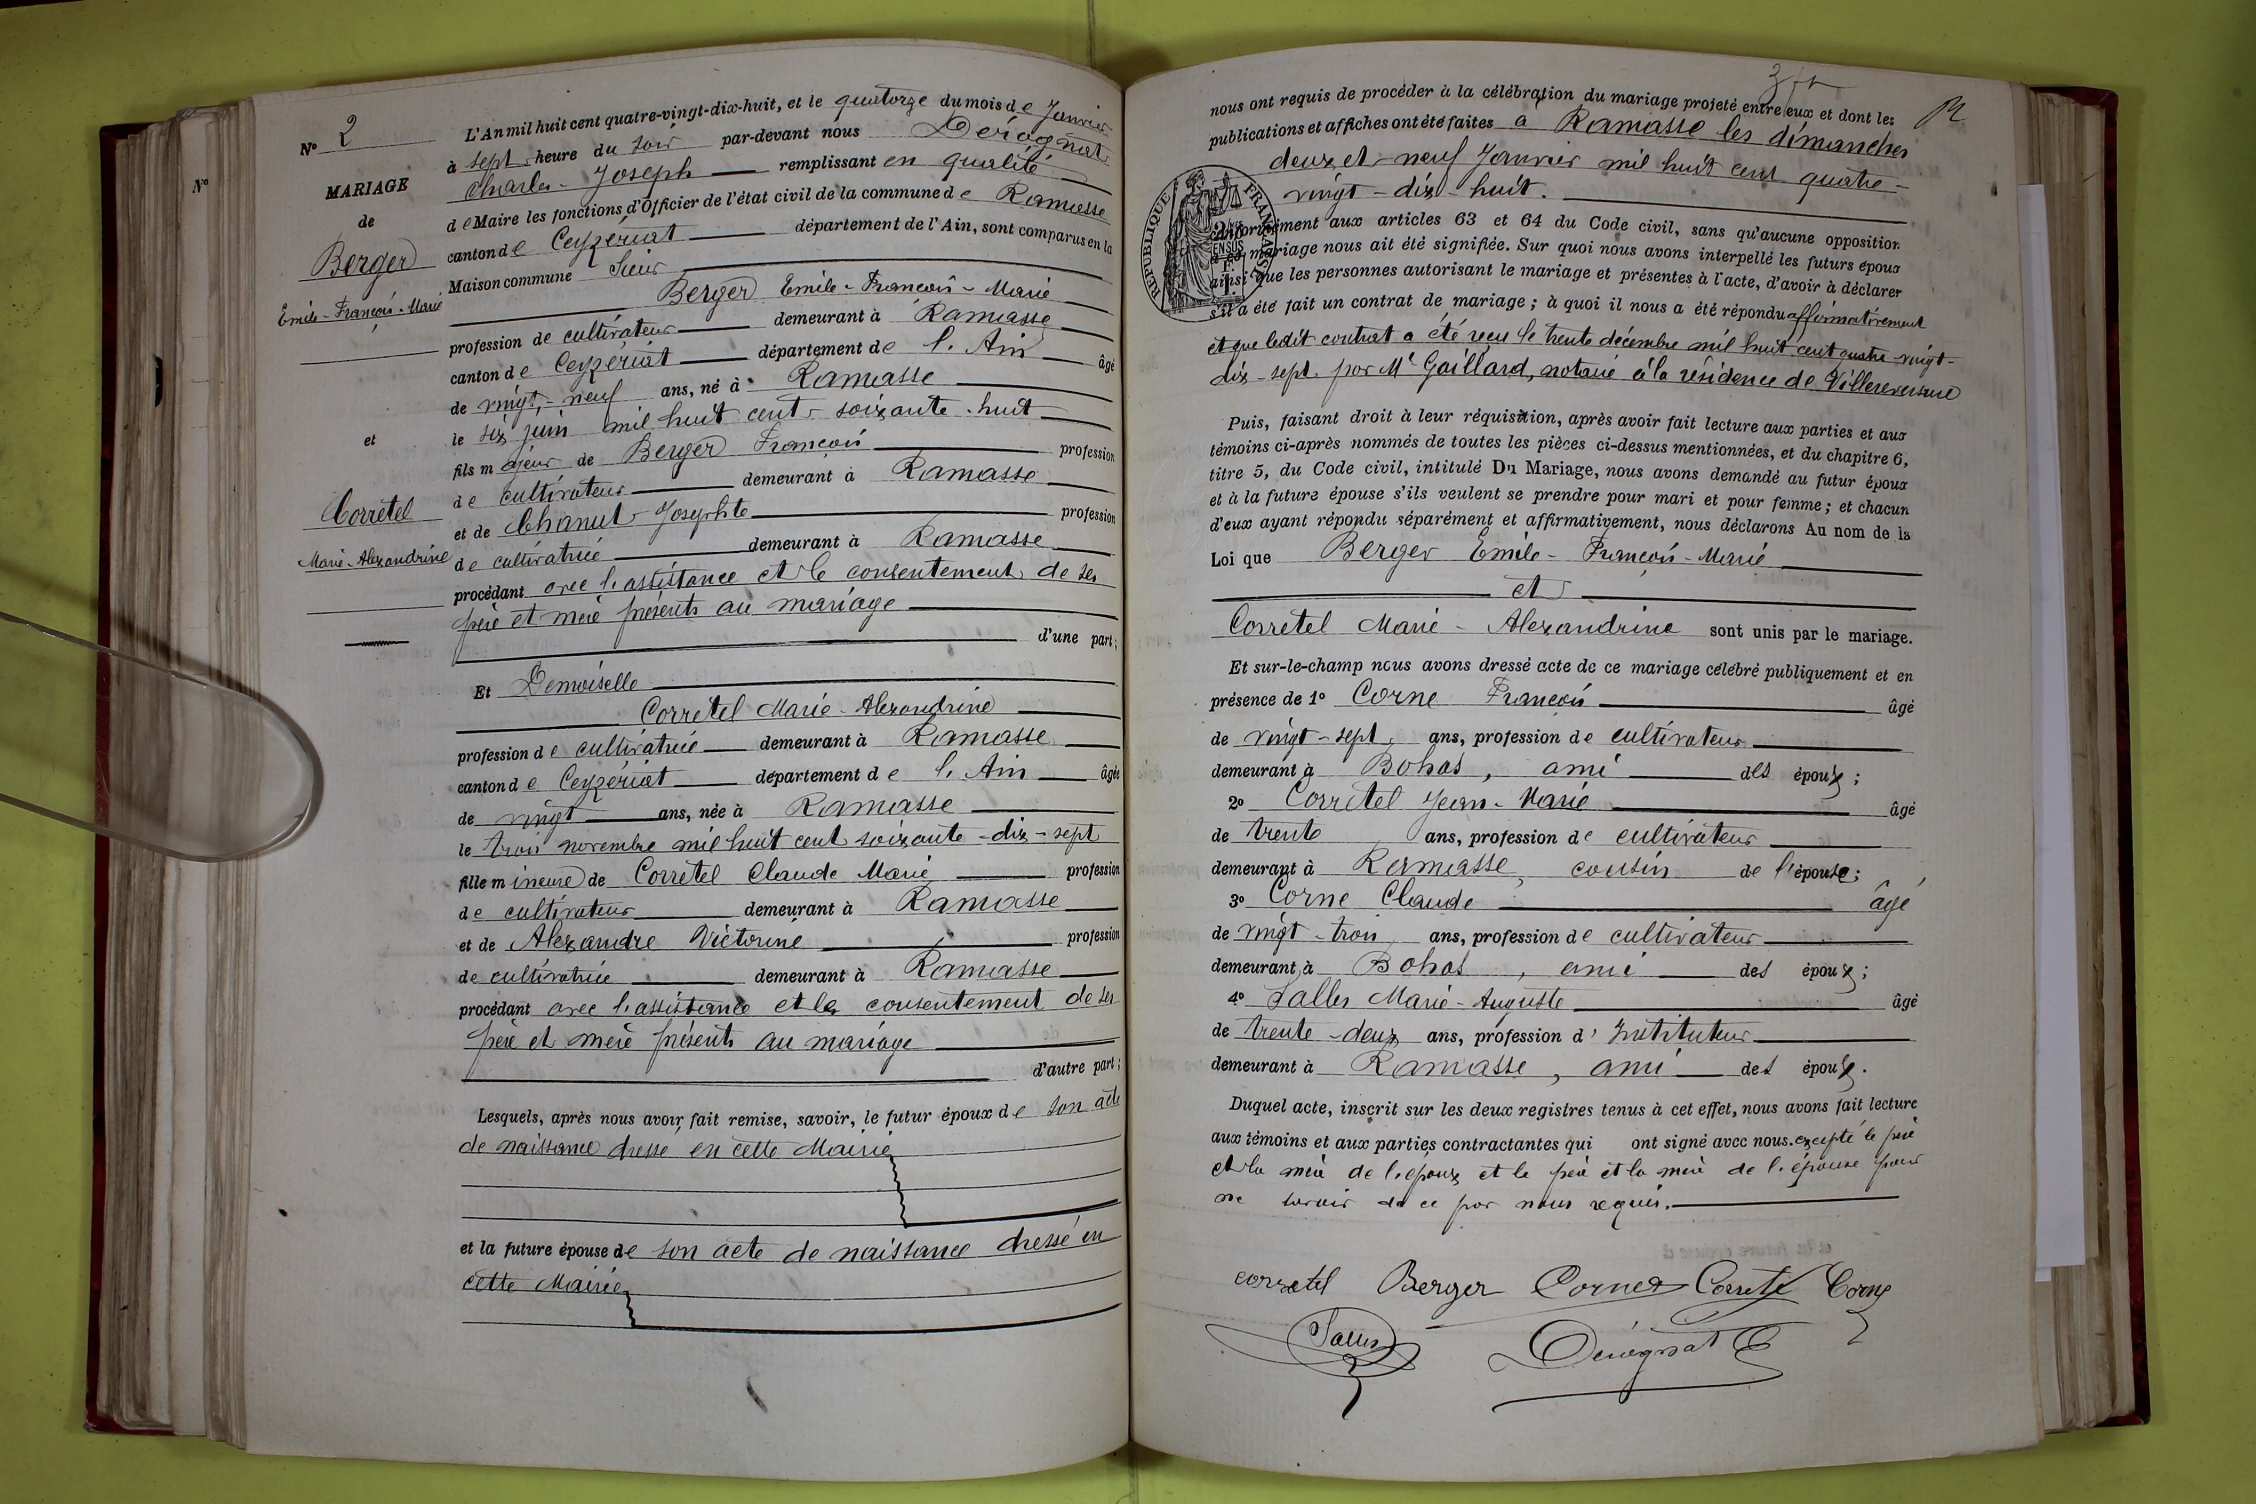 N° 2
N°
MARIAGE
de
Berger
Emile-François-Marie
et
Corretel
Marie-Alexandrine
L'An mil huit cent quatre-vingt-dix-huit, et le quatorze du mois de Janvier
à sept heure du soir par-devant nous Dérognat
Charles-Joseph remplissant en qualité
de Maire les fonctions d'Officier de l'état civil de la commune de Ramasse
canton de Ceyzériat département de l'Ain, sont comparus en la
Maison commune Sieur
Berger Emile-François-Marie
profession de cultivateur demeurant à Ramasse
canton de Ceyzériat département de l'Ain âgé
de vingt-neuf ans, né à Ramasse
le six juin mil huit cent soixante-huit
fils majeur de Berger François profession
de cultivateur demeurant à Ramasse
et de Chanut Josephte profession
de cultivatrice demeurant à Ramasse
procédant avec l'assistance et le consentement de ses
père et mère présents au mariage
d'une part;
Et Demoiselle
Corretel Marie-Alexandrine
profession de cultivatrice demeurant à Ramasse
canton de Ceyzériat département de l'Ain âgée
de vingt ans, née à Ramasse
le trois novembre mil huit cent soixante-dix-sept
fille mineure de Corretel Claude Marie profession
de cultivateur demeurant à Ramasse
et de Alexandre Victorine profession
de cultivatrice demeurant à Ramasse
procédant avec l'assistance et le consentement de ses
père et mère présents au mariage
d'autre part;
Lesquels, après nous avoir fait remise, savoir, le futur époux de son acte
de naissance dressé en cette Mairie
et la future épouse de son acte de naissance dressé en
cette Mairie
nous ont requis de procéder à la célébration du mariage projeté entre eux et dont les
publications et affiches ont été faites à Ramasse les dimanches
deux et neuf Janvier mil huit cent quatre-
vingt-dix-huit.
REPUBLIQUE FRANÇAISE
conformément aux articles 63 et 64 du Code civil, sans qu'aucune opposition
à ce mariage nous ait été signifiée. Sur quoi nous avons interpellé les futurs époux
ainsi que les personnes autorisant le mariage et présentes à l'acte, d'avoir à déclarer
s'il a été fait un contrat de mariage; à quoi il nous a été répondu affirmativement
et que ledit contrat a été reçu le trente décembre mil huit cent quatre-vingt-
dix-sept par Me Gaillard, notaire à la résidence de Villereversure
Puis, faisant droit à leur réquisition, après avoir fait lecture aux parties et aux
témoins ci-après nommés de toutes les pièces ci-dessus mentionnées, et du chapitre 6,
titre 5, du Code civil, intitulé Du Mariage, nous avons demandé au futur époux
et à la future épouse s'ils veulent se prendre pour mari et pour femme; et chacun
d'eux ayant répondu séparément et affirmativement, nous déclarons Au nom de la
Loi que Berger Emile-François-Marie
et
Corretel Marie-Alexandrine sont unis par le mariage.
Et sur-le-champ nous avons dressé acte de ce mariage célébré publiquement et en
présence de 1° Corne François âgé
de vingt-sept ans, profession de cultivateur
demeurant à Bohas, ami des époux;
2° Corretel Jean-Marie âgé
de trente ans, profession de cultivateur
demeurant à Ramasse, cousin de l'épouse;
3° Corne Claude âgé
de vingt-trois ans, profession de cultivateur
demeurant à Bohas, ami des époux;
4° Salles Marie-Auguste âgé
de trente-deux ans, profession d'Instituteur
demeurant à Ramasse, ami des époux.
Duquel acte, inscrit sur les deux registres tenus à cet effet, nous avons fait lecture
aux témoins et aux parties contractantes qui ont signé avec nous. excepté le père
et la mère de l'époux et le père et la mère de l'épouse pour
ne savoir de ce par nous requis.
corretel Berger Corne Corretel Corne
Salles Dérognat